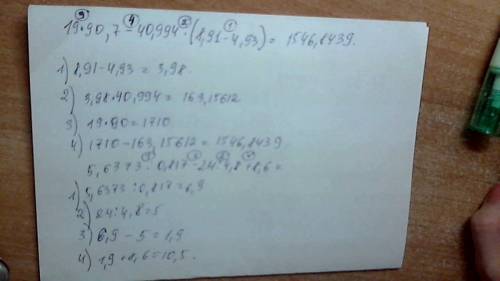 19·90,7-40,994·(8,91-4,93)= 1546,8439.
1) 8,91-4,93=3,98.
2) 3,98·40,994=163,15612
3) 19·90=1710
4) 1710-163,15612=1546,8439.
5,6373:0,817-24:4,8+8,6=
1) 5,6373:0,817=6,9
2) 24:4,8=5
3) 6,9-5=1,9
4) 1,9+8,6=10,5.